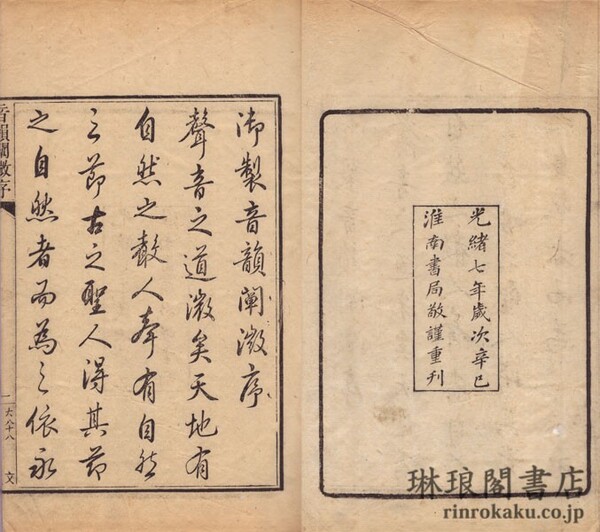 光緒七年歲次辛巳
淮南書局敬謹重刊
御製音韻闡微序
聲音之道微矣天地有
自然之聲人聲有自然
之節古之聖人得其節
之自然者而為之依永
音韻闡微序
一
文
琳琅閣書店
rinrokaku.co.jp